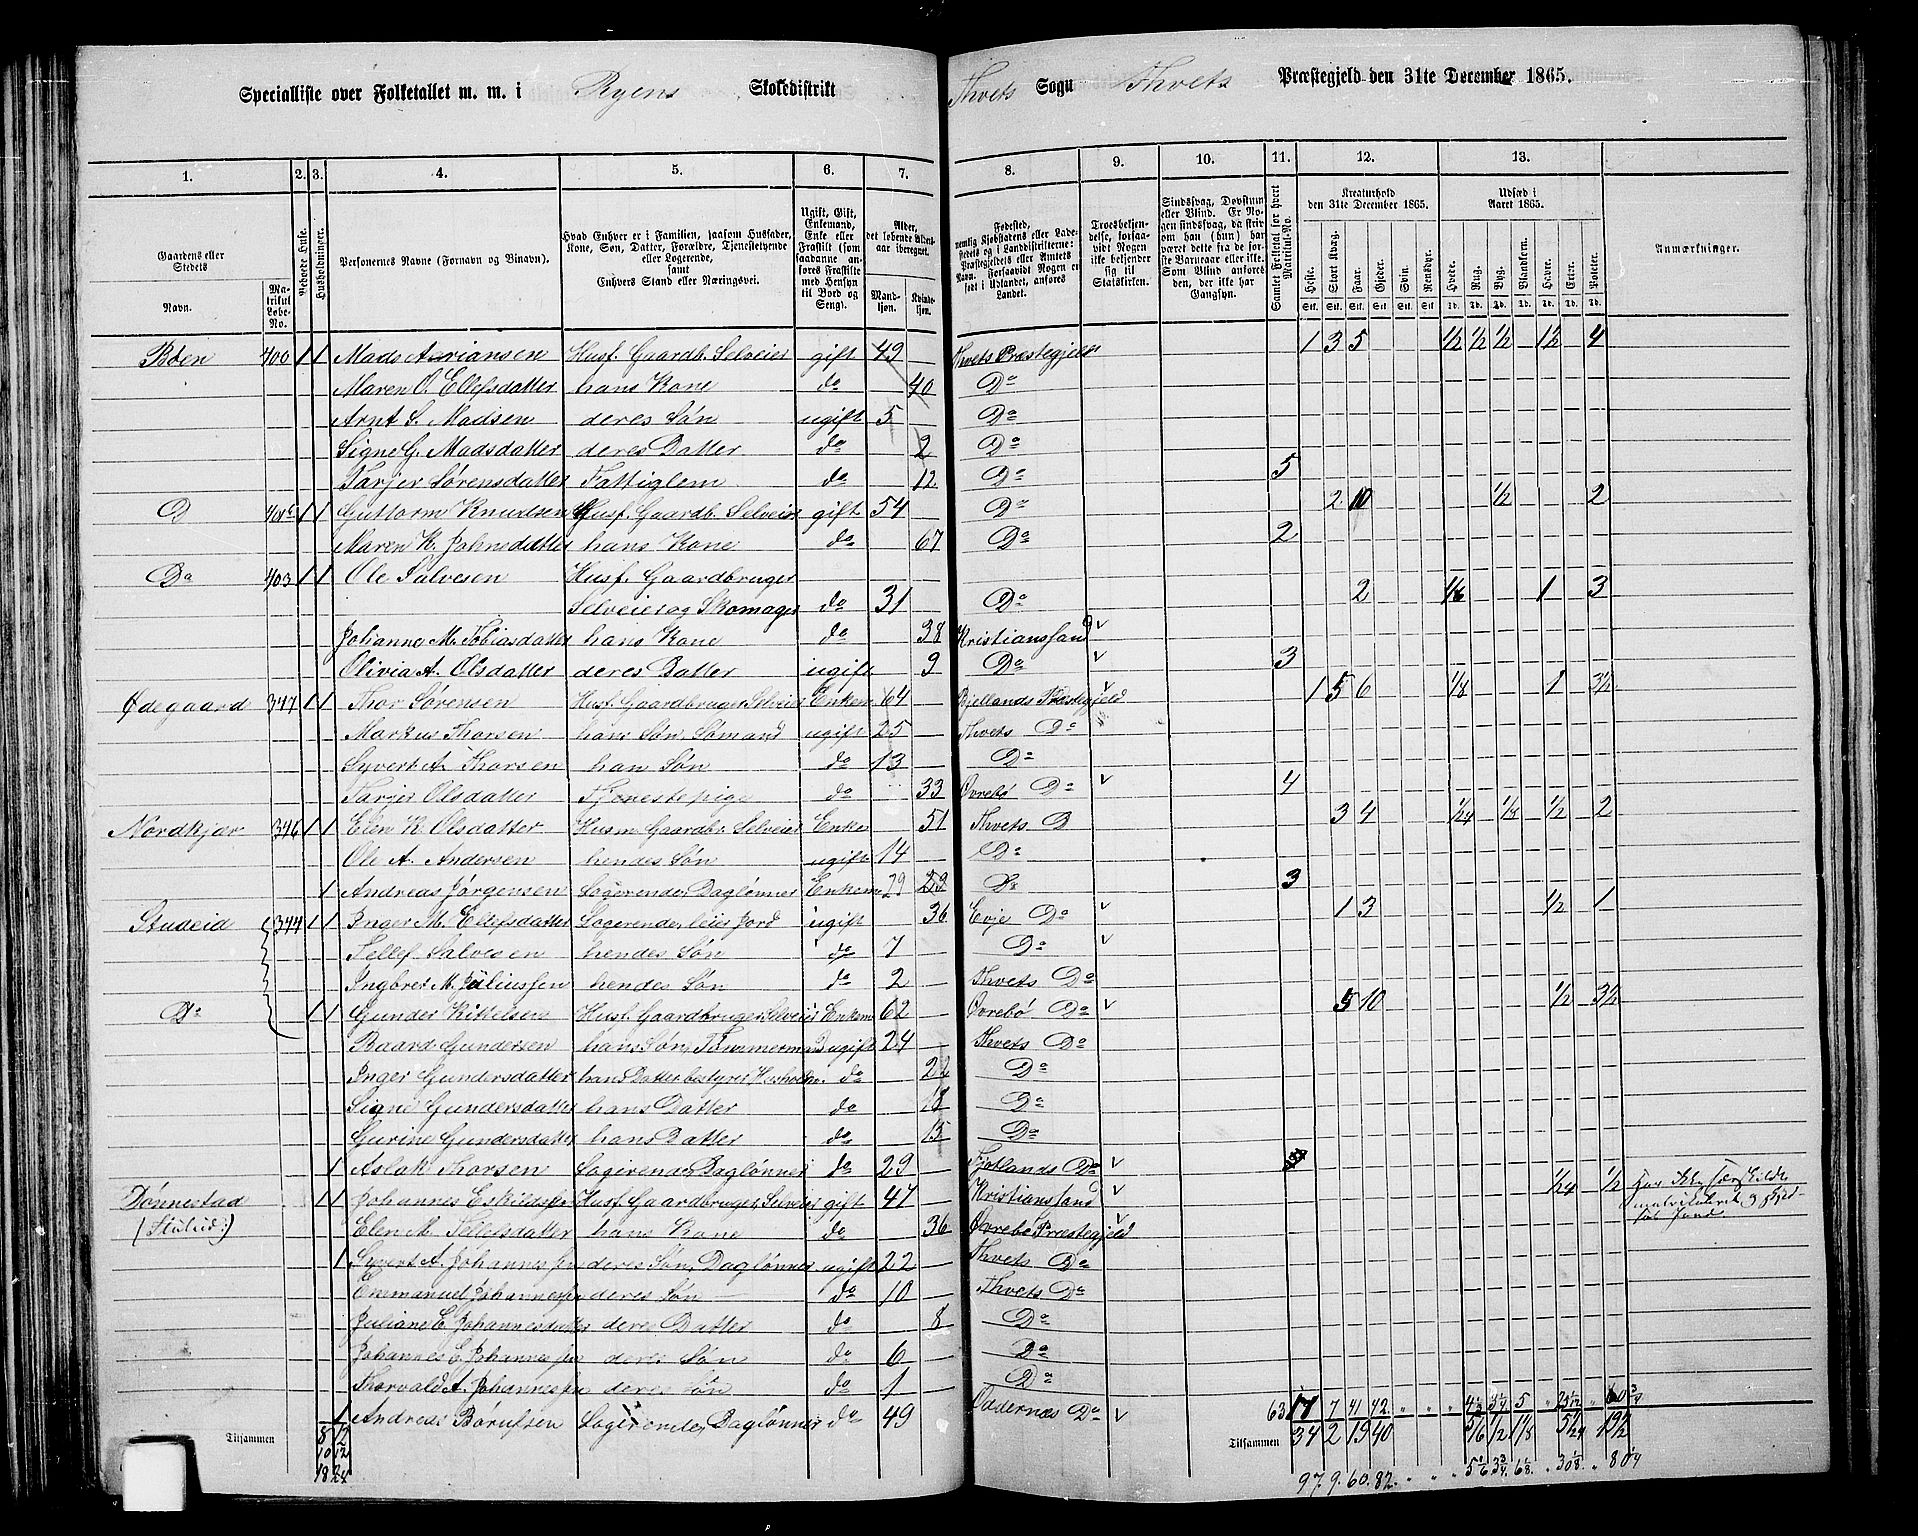 Specialliste over Folketallet m. m. i Ryens Skoledistrikt Thvets Sogn Thvets Præstegjeld den 31te December 1865.
1. 2. 3. 4. 5. 6. 7. 8. 9. 10. 11. 12. 13.
Gaardens eller Stedets Navn. Matrikul Løbe-No. Beboede Huse. Husholdninger. Personernes Navne (Fornavn og Tilnavn). Hvad Enhver er i Familien, saasom Husfader, Kone, Søn, Datter, Forældre, Tjenestetyende eller Logerende, samt Enhvers Stand eller Næringsvei. Ugift, Gift, Enkemand, Enke eller Fraskilt (som saadanne anføres med Hensyn til Bord og Seng). Alder, det løbende Aldersaar iberegnet. Mandkjøn. Kvindekjøn. Fødested, Troesbekjendelse, forsaavidt Nogen ikke bekjender sig til Statskirken. Sindssvag, Døvstum eller Blind. Samlet Folketal for hvert Matrikul-No. Kreaturhold den 31te December 1865. Heste. Stort Kvæg. Faar. Gjeder. Svin. Rensdyr. Udsæd i Aaret 1865. Hvede. Rug. Byg. Blandkorn. Havre. Erter. Poteter. Anmærkninger.
Boen 400 1 1 Mads Adriansen Husf. Gaardb. Selveier gift 49 Thvets Præstegjeld 1 3 5 1/2 1/2 1/2 1 2 4
Maren O. Ellefsdatter hans Kone do 40 Do
Arnt S. Madsen deres Søn ugift 5 Do
Signe G. Madsdatter deres Datter do 2 Do
Tarjer Sørensdatter Fattiglem do 12 Do 5
Do 1 1 Guttorm Knudsen Husf. Gaardb. Selveier gift 54 Do 2 10 1/2 2
Maren K. Johnsdatter hans Kone do 67 Do 2
Do 403 1 1 Ole Salvesen Husf. Gaardbruger
Selveier og Skomager do 31 Do 2 1/6 1 3
Johanne M. Tobiasdatter hans Kone do 38 Kristianssand
Olivia A. Olsdatter deres Datter ugift 9 Do 3
Ødegaard 347 1 1 Thor Sørensen Husf. Gaardbruger Selveier Enkem 64 Bjellands Præstegjeld 1 5 6 1/8 1 3 1/2
Markus Thorsen hans Søn Sømand ugift 25 Thvets Do
Syvert A. Thorsen han Søn do 13 Do
Tarjer Olsdatter Tjenestepige do 33 Øvrebø Do 4
Nordkjær 346 1 1 Elen K. Olsdatter Husm Gaardbr. Selveier Enke 51 Thvets D 3 4 1/24 1/8 1/2 2
Ole A. Andersen hendes Søn ugift 14 Do
1 Andreas Jørgensen Logerende, Daglønner Enkem 29 Do 3
Studeid 344 1 1 Inger M. Ellefsdatter Logerende, leier Jord ugift 36 Evje Do 1 3 1/2 1
Tellef Salvesen hendes Søn do 7 Do
Ingbret M. Juliussen hendes Søn do 2 Thvets Do
Do 1 1 Gunder Kittelsen Husf. Gaardbruger, Selveier Enkem 62 Øvrebø Do 5 10 1/2 3 1/2
Baard Gundersen hans Søn, Tømmermand ugift 24 Thvets Do
Inger Gundersdatter hans Datter bestyrer Husholdn. do 22 Do
Signe Gundersdatter hans Datter do 18 Do
Gurine Gundersdatter hans Datter do 15 Do
1 Aslak Thorsen Logerende Daglønner do 29 Fjotlands Do
Dønnestad 1 1 Johannes Eskildsen Husf. Gaardbruger, Selveier gift 47 Kristianssand 1/24 1/2 Har ikke særskilte
(Stulid:) Elen M. Tellefsdatter hans Kone do 36 Øvrebø Præstegjeld
1 Syvert A. Johannessen deres Søn, Daglønner ugift 22 Thvets Do
Emmanuel Johannessen deres Søn do 10 Thvets Do
Juliane E. Johannesdatter deres Datter do 8 Do
Johannes E. Johannessen deres Søn do 6 Do
Thorvald A. Johannessen deres Søn do 1 Do
1 Andreas Børufsen Logerende, Daglønner do 49 Do
Tilsammen 8 12 Tilsammen 34 2 19 40 5/6 1/2 1 1/8 5 1/24 19 1/2
10 12
18 24 97. 9. 60. 82. 5 1/6 3 3/4 6 1/8 30 1/8 80 1/4